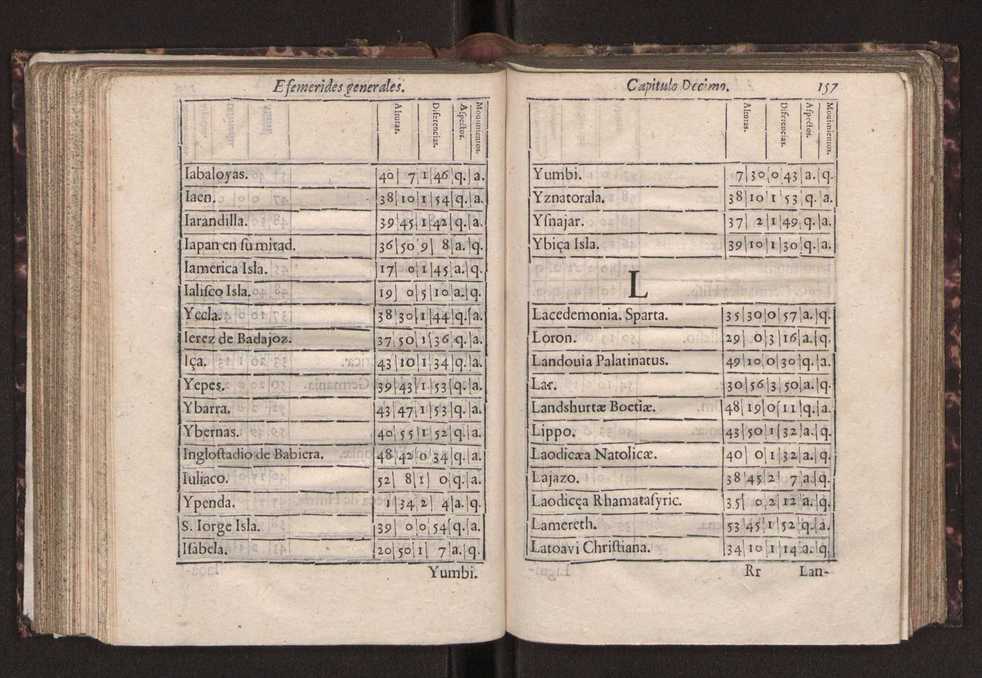 Efemerides generales.
Alturas. Diferencias. Aspectos. Mouimientos.
Iabaloyas. 40 7 1 46 q. a.
Iaen. 38 10 1 54 q. a.
Iarandilla. 39 45 1 42 q. a.
Iapan en su mitad. 36 50 9 8 a. q.
Iamerica Isla. 17 0 1 45 a. q.
Ialisco Isla. 19 0 5 10 a. q.
Yccla. 38 30 1 44 q. a.
Ierez de Badajoz. 37 50 1 36 q. a.
Iça. 43 10 1 34 q. a.
Yepes. 39 43 1 53 q. a.
Ybarra. 43 47 1 53 q. a.
Ybernas. 40 55 1 52 q. a.
Inglostadio de Babiera. 48 42 0 34 q. a.
Iuliaco. 52 8 1 0 q. a.
Ypenda. 1 34 2 4 a. q.
S. Iorge Isla. 39 0 0 54 q. a.
Isabela. 20 50 1 7 a. q.
Yumbi.
Capitulo Decimo. 157
Alturas. Diferencias. Aspectos. Mouimientos.
Yumbi. 7 30 0 43 a. q.
Yznatorala. 38 10 1 53 q. a.
Ysnajar. 37 2 1 49 q. a.
Ybiça Isla. 39 10 1 30 q. a.
L
Lacedemonia. Sparta. 35 30 0 57 a. q.
Loron. 29 0 3 16 a. q.
Landouia Palatinatus. 49 10 0 30 q. a.
Lar. 30 56 3 50 a. q.
Landshurtæ Boetiæ. 48 19 0 11 q. a.
Lippo. 43 50 1 32 a. q.
Laodicæa Natolicæ. 40 0 1 32 a. q.
Lajazo. 38 45 2 7 a. q.
Laodicęa Rhamatasyric. 35 0 2 12 a. q.
Lamereth. 53 45 1 52 q. a.
Latoavi Christiana. 34 10 1 14 a. q.
Rr Lan-